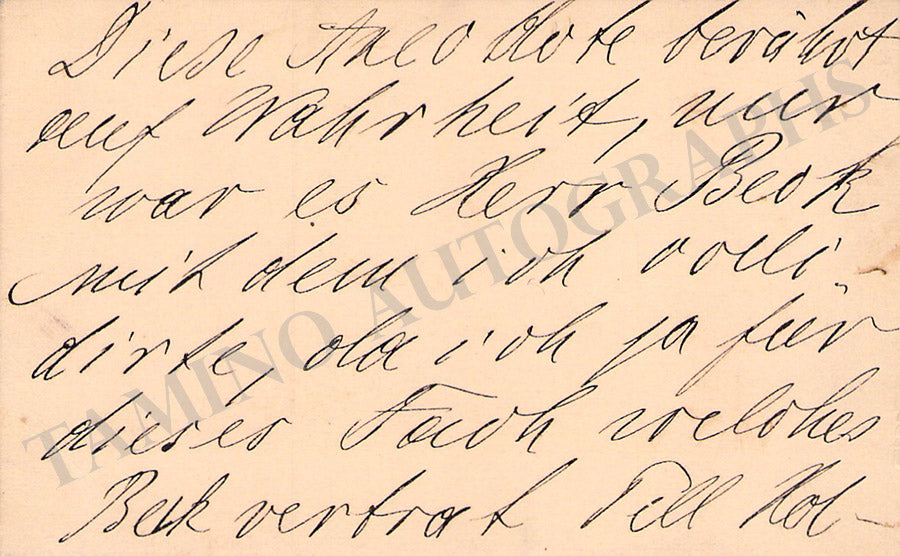 Diese Anecdote berührt
auf Wahrheit, nur
war es Herr Beck
mit dem ich colli-
dirte, da ich ja für
dieses Fach welches
Beck vertrat Till Hol-
TAMINO AUTOGRAPHS